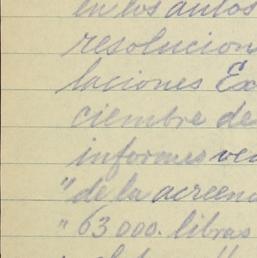 en los autos
resolucion
laciones Ex
ciembre de
informes ve
"de la acreen
"63000. libras